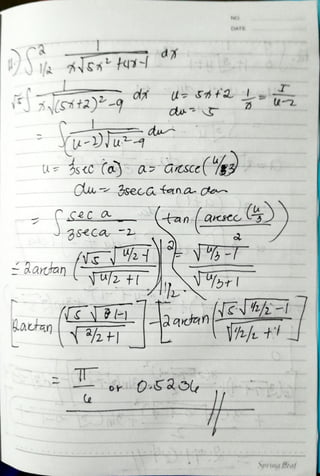 NO.
DATE
4.) ∫ 1/2 2 1 / x√5x² + 4x-1 dx
√5 ∫ 1 / x√(5x+2)² - 9 dx u = 5x+2 1/x = 5/u-2
du = 5
= ∫ 1 / (u-2)√u² - 9 du
u = 3sec (a) a = arcsec (u/3)
du = 3sec a tan a da
= ∫ sec a / 3sec a - 2 (tan (arcsec (u/3)) / 2)
= 2arctan (√5 √u/2 - 1 / √u/2 + 1) | 2 1/2 = √u/3 - 1 / √u/3 + 1
[2arctan (√5 √ - 1 / √2/2 + 1)] - [2arctan (√5 √1/2/2 - 1 / √1/2/2 + 1)]
= π/6 or 0.5236 //
Spring Leaf